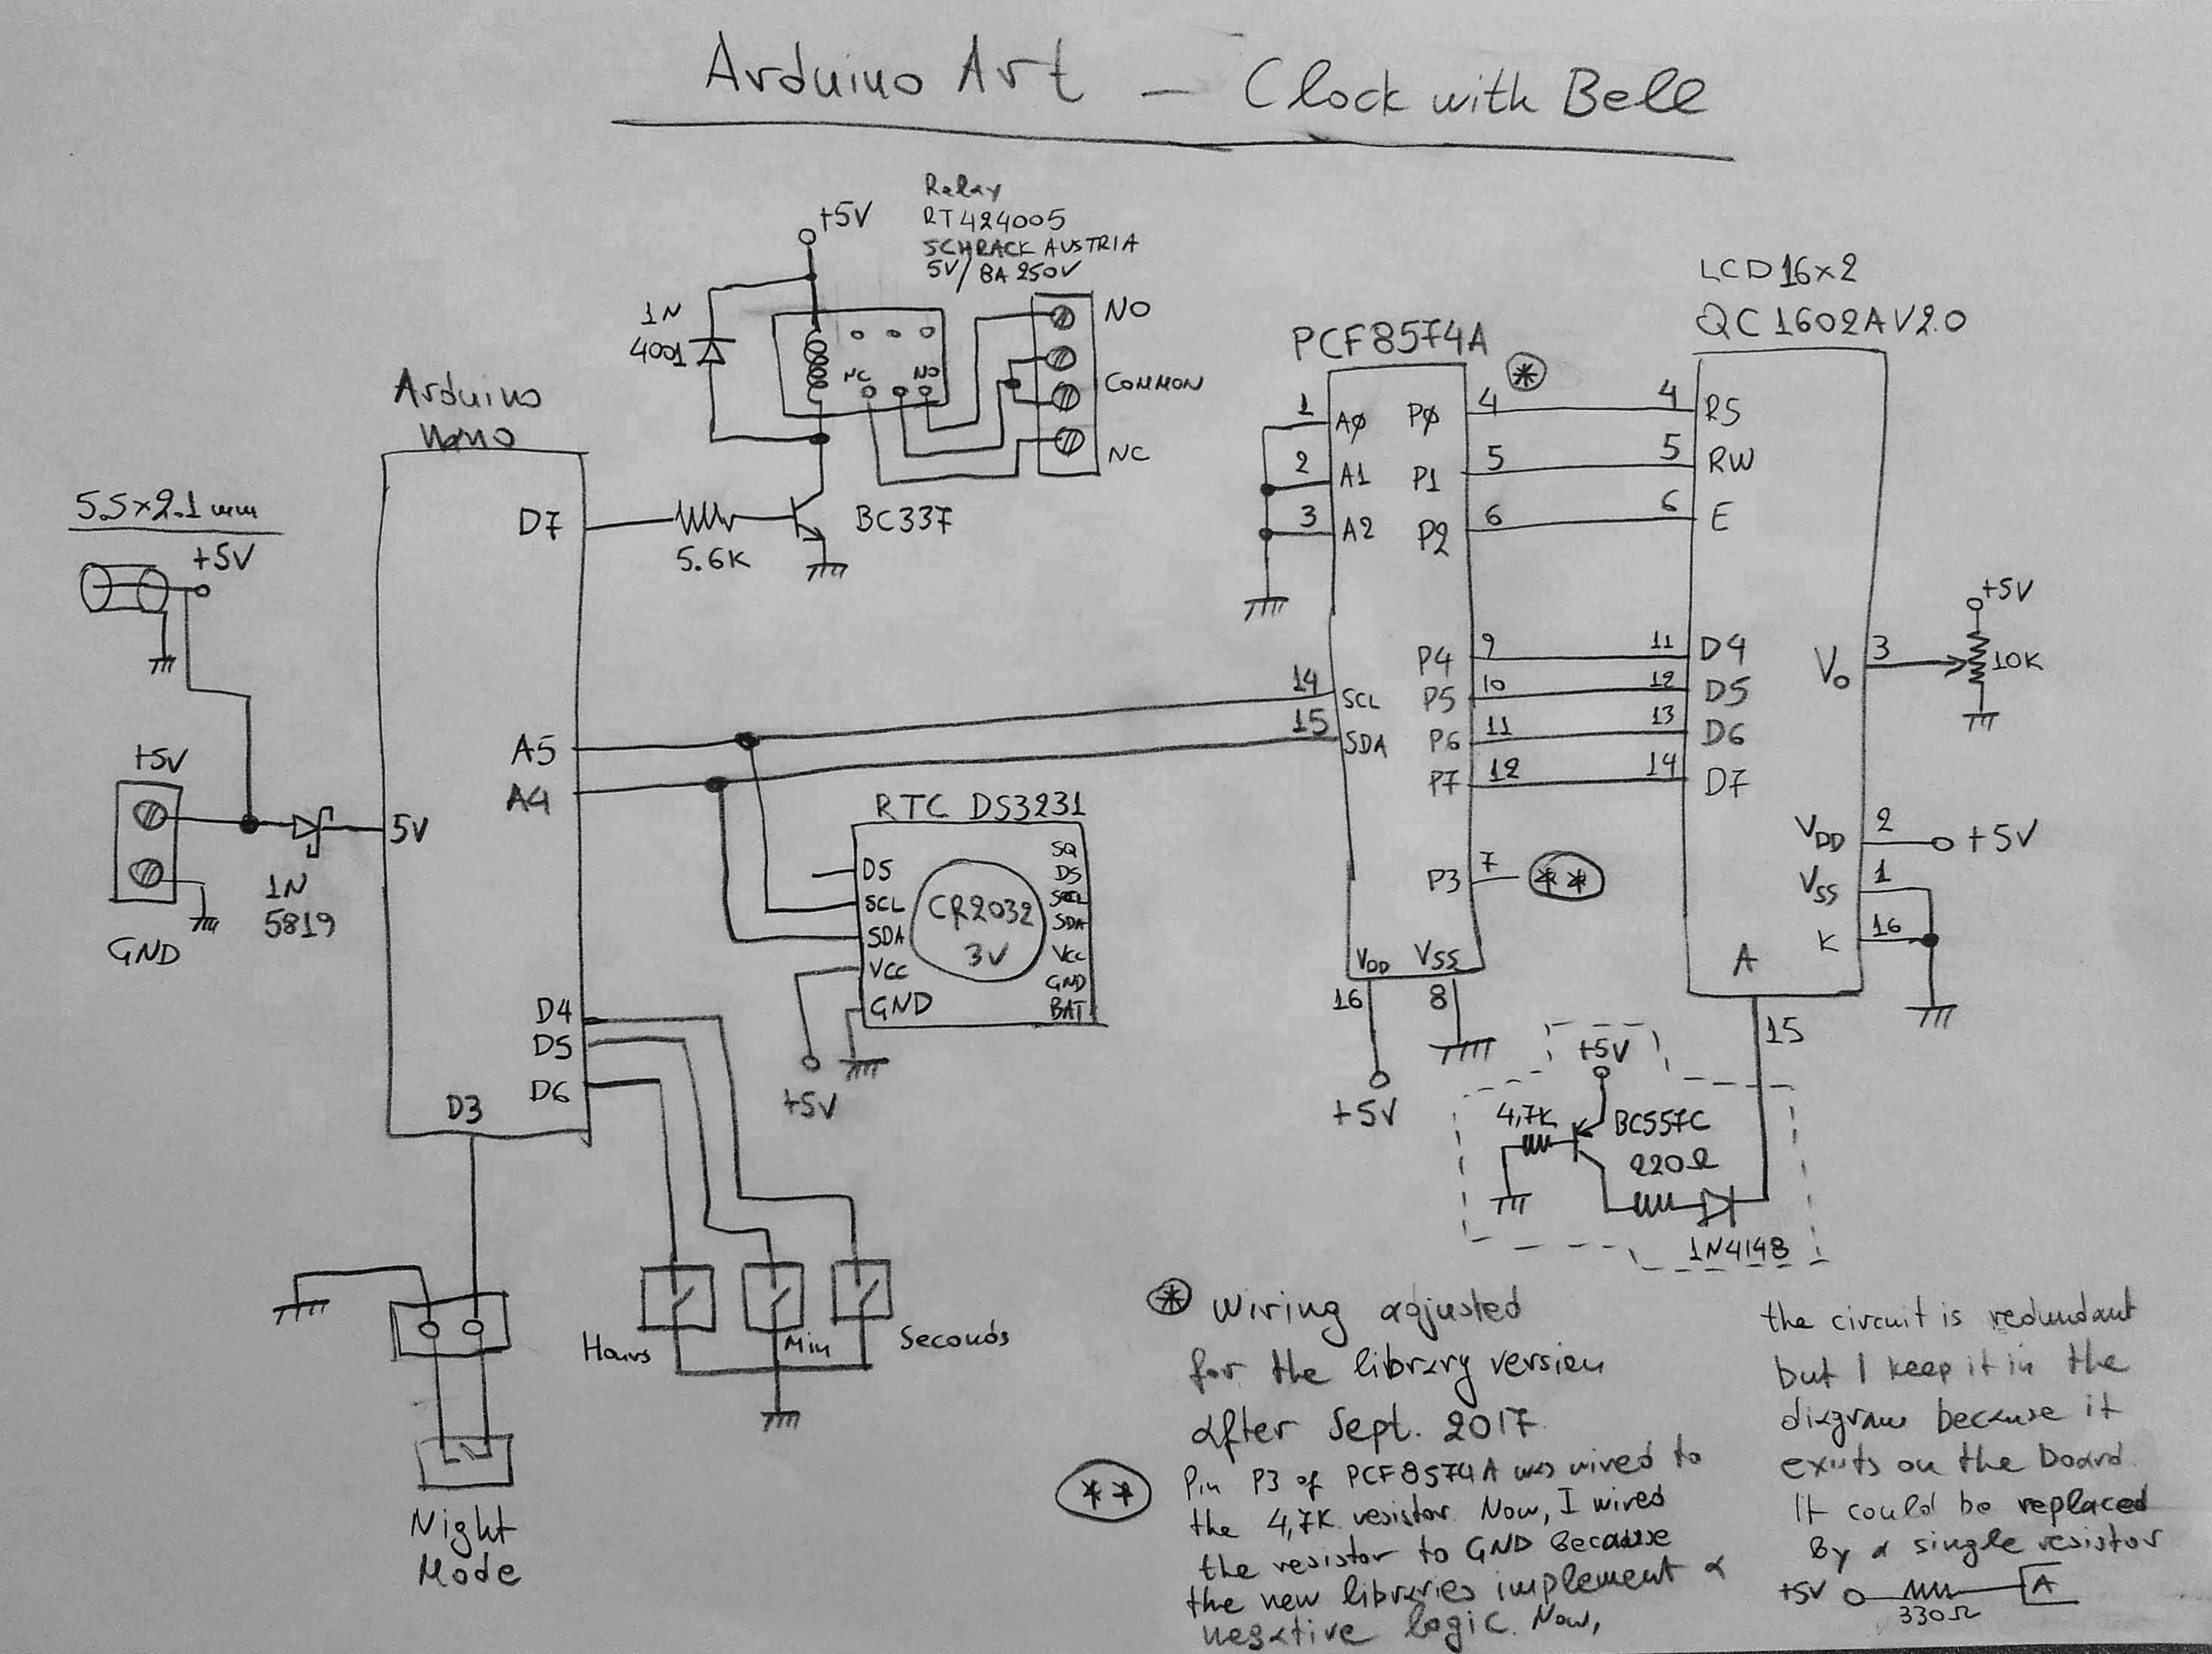 Arduino Art - Clock with Bell
Relay
RT424005
SCHRACK AUSTRIA
5V/8A 250V
+5V
1N
4001
NC
NO
NO
COMMON
NC
Arduino
Nano
D7
5.6K
BC337
5.5x2.1mm
+5V
+5V
GND
1N
5819
5V
A5
A4
D4
D5
D6
D3
RTC DS3231
DS
SCL
SDA
VCC
GND
CR2032
3V
SQ
DS
SCL
SDA
VCC
GND
BAT
+5V
Hours
Min
Seconds
Night
Mode
PCF8574A
*
1 A0 P0 4
2 A1 P1 5
3 A2 P2 6
14 SCL
15 SDA
P4 9
P5 10
P6 11
P7 12
P3 7 **
VDD VSS
16 8
+5V
LCD16x2
QC1602AV2.0
4 RS
5 RW
6 E
11 D4
12 D5
13 D6
14 D7
Vo 3
+5V
10K
VDD 2 +5V
VSS 1
K 16
A
15
+5V
4,7K
BC557C
220Ω
1N4148
* Wiring adjusted
for the library version
after Sept. 2017
** Pin P3 of PCF8574A was wired to
the 4,7K resistor. Now, I wired
the resistor to GND Because
the new libraries implement a
negative logic. Now,
the circuit is redundant
but I keep it in the
diagram because it
exists on the board.
It could be replaced
By a single resistor
+5V 330Ω A